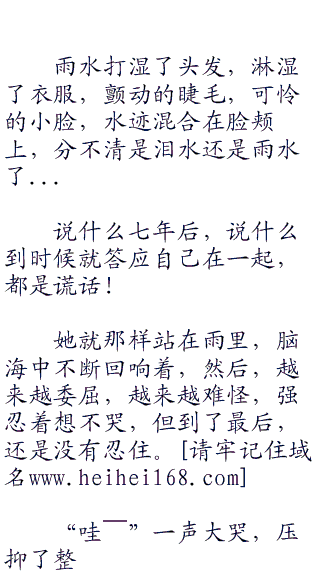 雨水打湿了头发，淋湿
了衣服，颤动的睫毛，可怜
的小脸，水迹混合在脸颊
上，分不清是泪水还是雨水
了...
说什么七年后，说什么
到时候就答应自己在一起，
都是谎话！
她就那样站在雨里，脑
海中不断回响着，然后，越
来越委屈，越来越难怪，强
忍着想不哭，但到了最后，
还是没有忍住。[请牢记住域
名www.heihei168.com]
“哇¯¯”一声大哭，压
抑了整